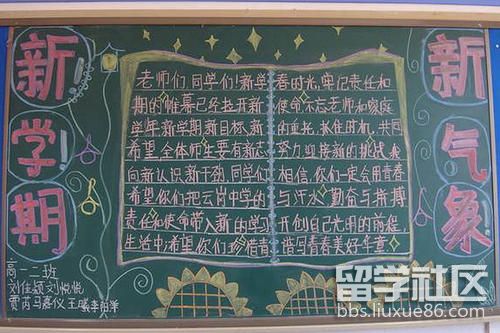 新学期
新气象
老师们 同学们!新学
期的帷幕已经拉开新
学年新学期新目标,新
希望全体师生要有新志
向新认识新干劲,同学们
希望你们把云岗中学的
责任和使命带入新的学习
生活中:希望你们珍惜青
春时光,牢记责任和
使命,不忘老师和家庭
的重托,抓住时机,共同
努力迎接新的挑战,我
相信,你们一定会用青春
与汗水,勤奋与拼搏
开创自己光明的前程,
谱写青春美好华章
高一二班
刘佳颖 刘悦悦
贾芮 马嘉仪 王曦
留学社区
bbs.liuxue86.com